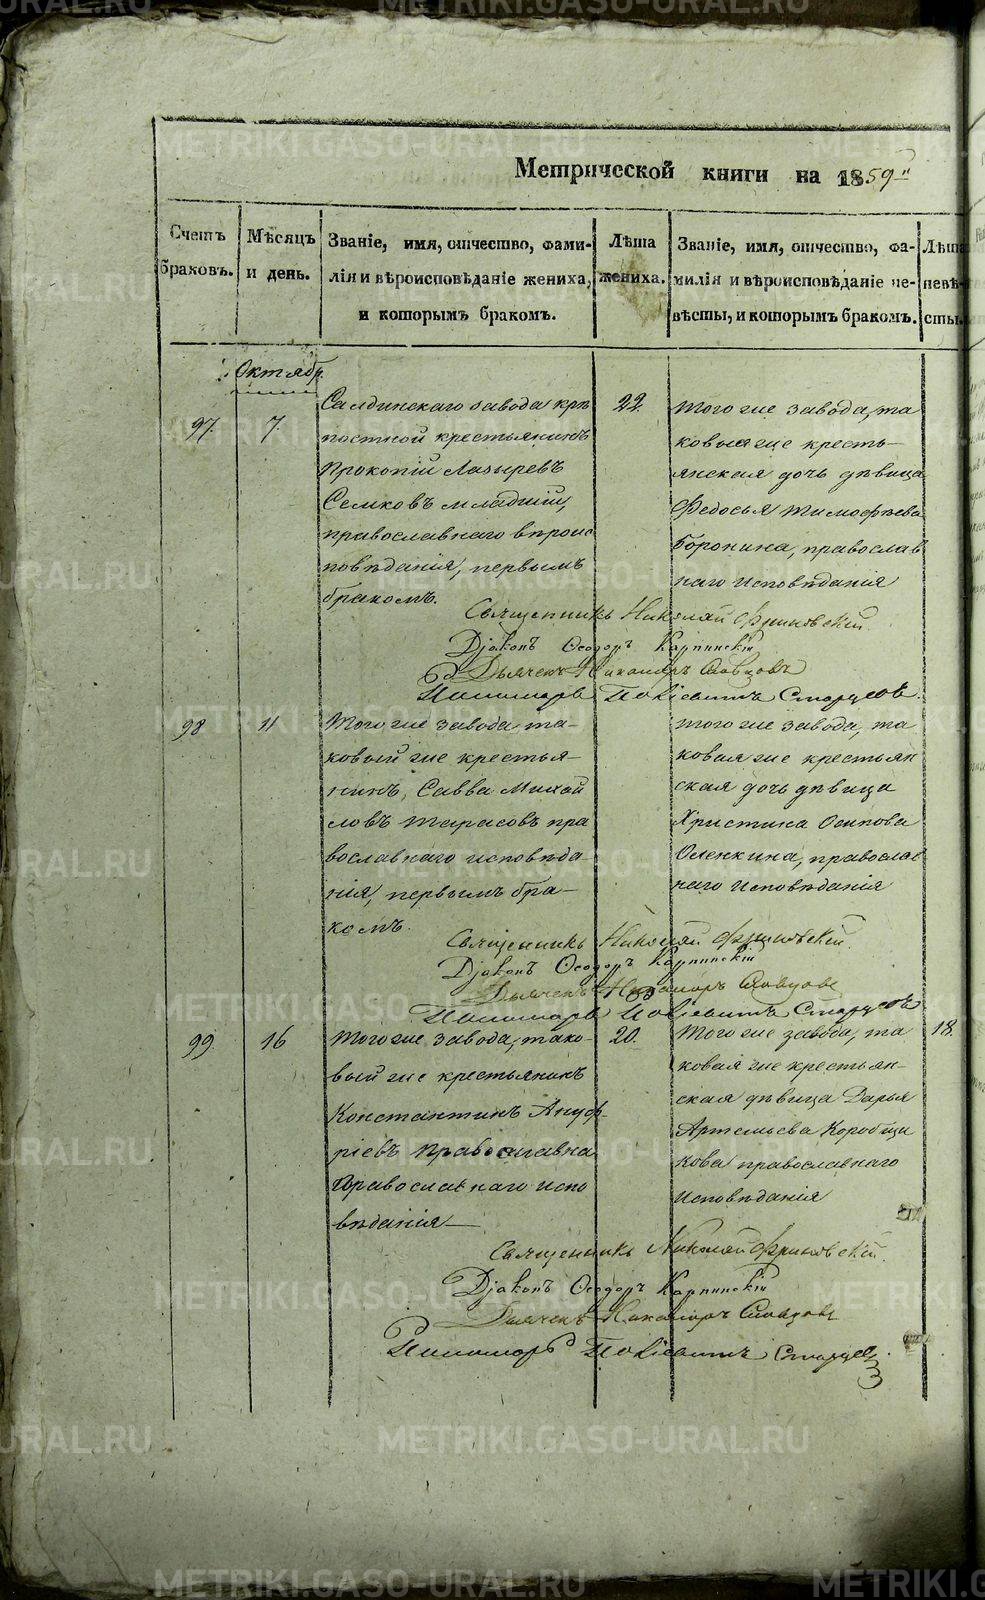 Метрической книги на 1859й
Счетъ браковъ.
Мѣсяцъ и день.
Званіе, имя, отчество, фами-
лія и вѣроисповѣданіе жениха,
и которымъ бракомъ.
Лѣта жениха.
Званіе, имя, отчество, фа-
милія и вѣроисповѣданіе не-
вѣсты, и которымъ бракомъ.
Лѣта невѣ-
сты.
Октябр.
97.
7.
Салдинскаго завода крѣ
постной крестьянинъ
Прокопій Лазыревъ
Семковъ младшій,
православнаго вѣроис
повѣданія, первымъ
бракомъ.
22.
того же завода, та
ковыя же кресть-
янская дочь дѣвица
Федосья Тимофѣева
Воронина, православ
наго исповѣданія
Священникъ Николай Фриновскій
Діаконъ Ѳеодоръ Карпинскій
Дьячекъ Никаноръ Словцовъ
Пономарь Старцевъ.
98
11
Того же завода та-
ковый же крестья-
нинъ, Савва Михай
ловъ Тарасовъ пра
вославнаго исповѣда-
нія, первымъ бра-
комъ.
того же завода, та
ковая же крестьян
ская дочь дѣвица
Христина Осипова
Оленкина, православ
наго исповѣданія
Священникъ Николай Фриновскій.
Діаконъ Ѳеодоръ Карпинскій
Дьячекъ Никаноръ Словцовъ
Пономарь Старцевъ
99.
16
Того же завода, тако-
вый же крестьянинъ
Константинъ Ануф-
ріевъ
Православнаго испо
вѣданія
20.
Того же завода, та
ковая же крестьян-
ская дѣвица Дарья
Артемьева Коробщи
кова православнаго
исповѣданія
18.
Священникъ Николай Фриновскій.
Діаконъ Ѳеодоръ Карпинскій
Дьячекъ Никаноръ Словцовъ
Пономарь Старцев.
METRIKI.GASO-URAL.RU